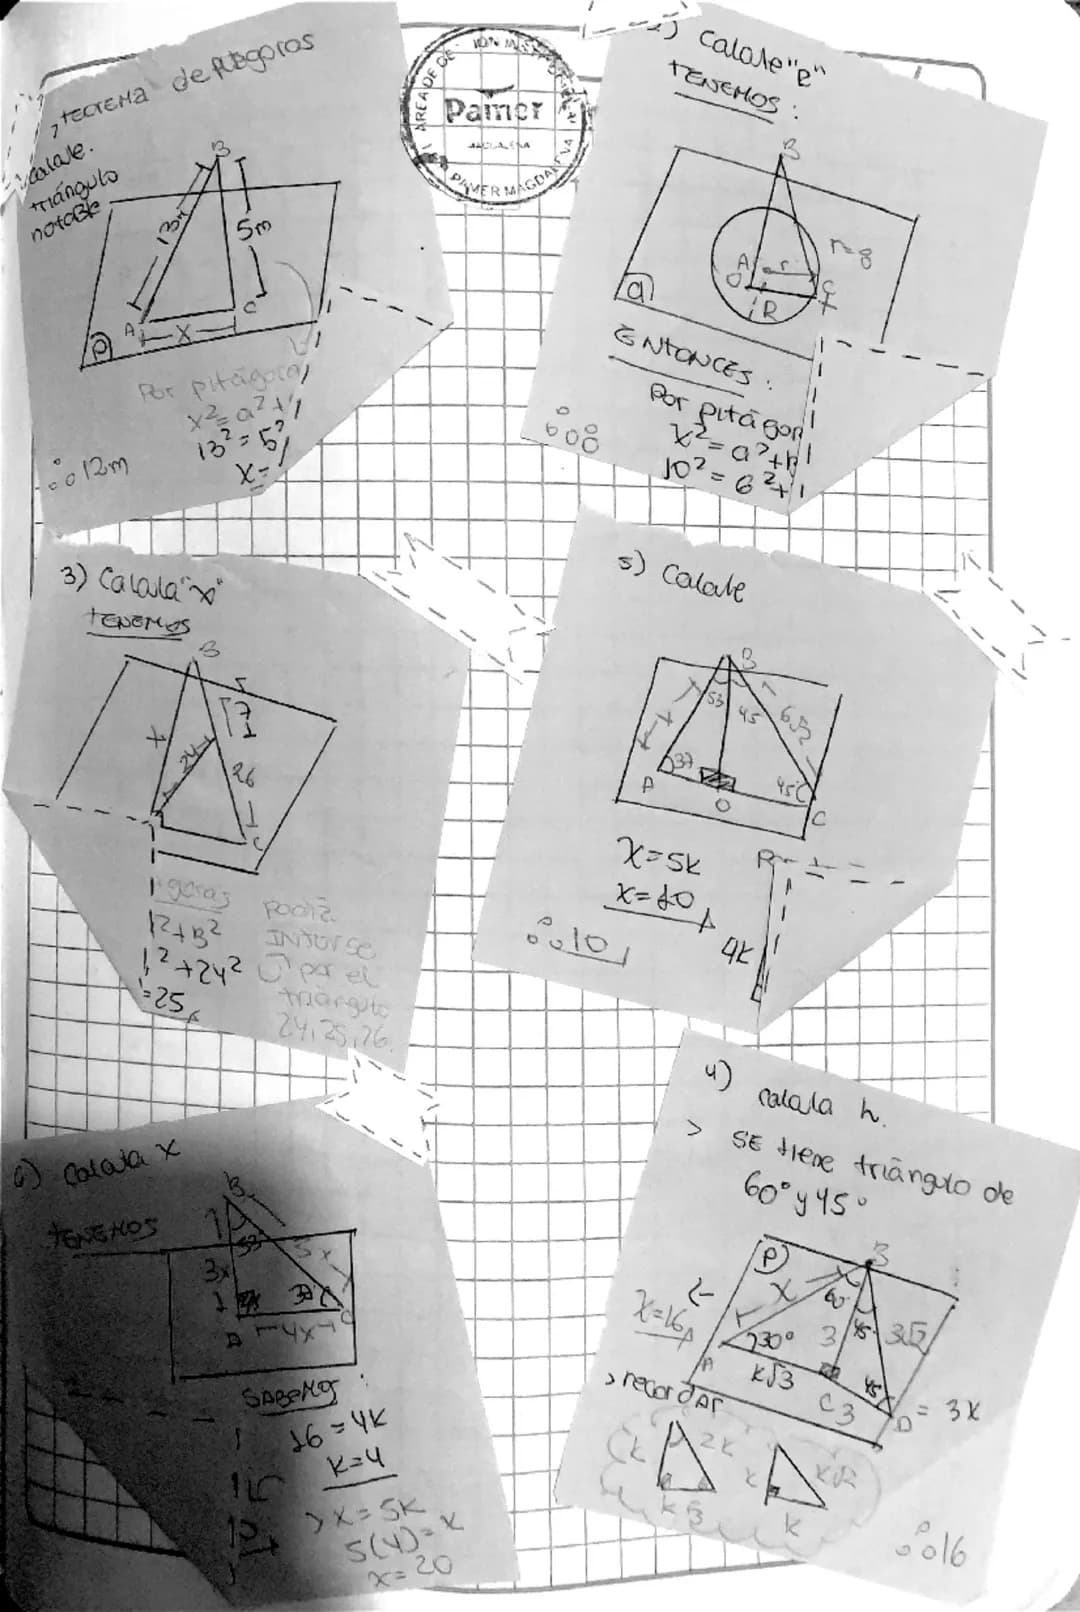 teorema de pitágoras
calcule.
triángulo
notable
B
13m
5m
A
x
C
P
Por pitágora
x²=a²+
13²=5²
x=
∴ 12m
Pamer
MAGDALENA
PAMER MAGDALENA
Calcule "R"
TENEMOS:
B
A
r
r=8
O
C
R
Q
ENTONCES:
Por pitágor
x²=a²+b
10²=6²+
3) Calcula "x"
TENEMOS
B
7
x
24
26
C
goras
²+B²
²+24²
=25
podía
por el
triángulo
24,25,26.
5) Calcule
B
53
45
x
37
45
A
O
C
x=5k
x=10
4k
∴ 10
6) calcula x
TENEMOS
B
53
5x
3x
37
4x
C
SABEMOS:
16=4k
k=4
> x=5k
5(4)=x
x=20
4) calcula h.
> SE tiene triángulo de
60° y 45°
P
B
x
60
x=16
30°
3
45
3√2
A
k√3
C
3
45
D
= 3x
> recordar
k
2k
k√3
k
k√2
k
∴ 16